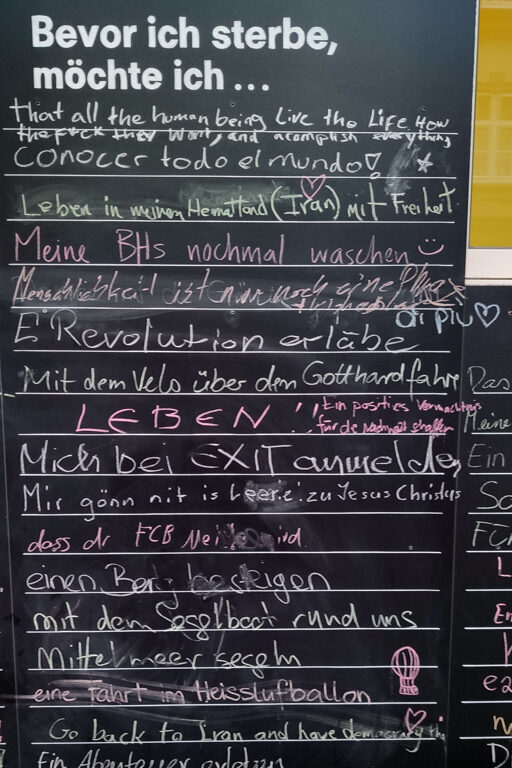 Bevor ich sterbe,
möchte ich ...
that all the human being live the Life How
the f*ck they want, and acomplish everything
conocer todo el mundo!
Leben in meinen Heimatland (Iran) mit Freiheit
Meine BHs nochmal waschen
Menschlichkeit ist nur noch eine
di più
E Revolution erläbe
Mit dem Velo über den Gotthard fahre
LEBEN !!
Ein posities Vermächtnis
für die Nachwelt schaffen
Mich bei EXIT anmelden
Mir gönn nit is Leere: zu Jesus Christus
dass dr FCB Meister wird
einen Berg besteigen
mit dem Segelboot rund uns
Mittelmeer segeln
eine Fahrt im Heissluftballon
Go back to Iran and have democracy
Ein Abenteuer erleben
Das
Meine
Ein
So
Für